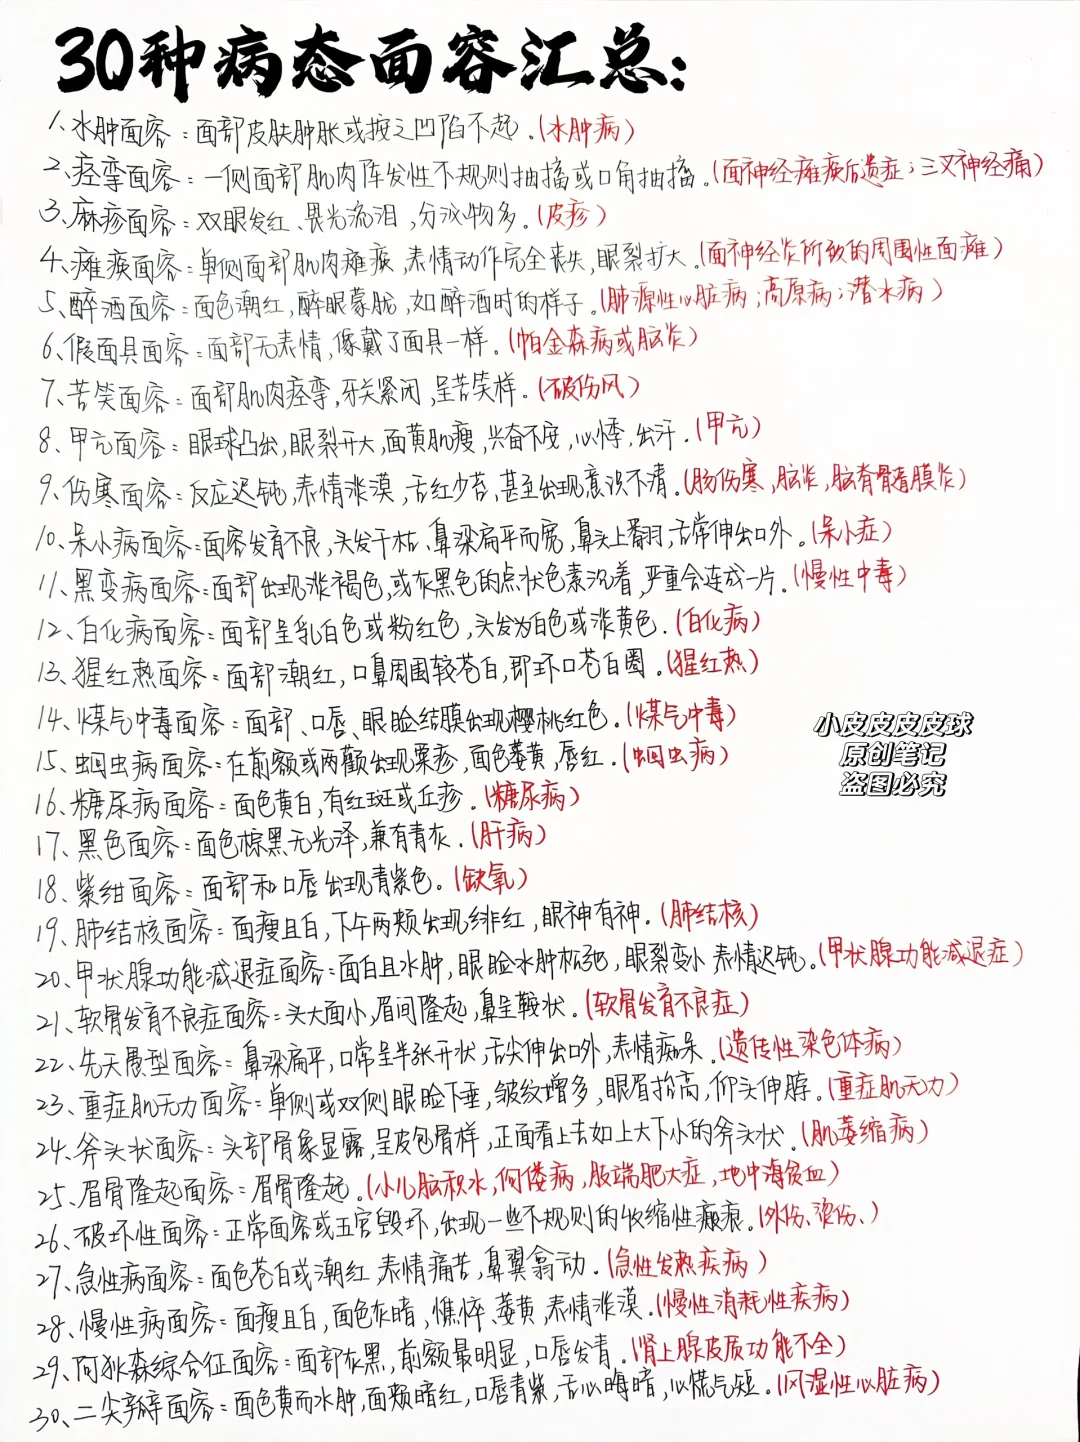 30种病态面容汇总:
1、水肿面容:面部皮肤肿胀或按之凹陷不起.(水肿病)
2、痉挛面容:一侧面部肌肉阵发性不规则抽搐或口角抽搐.(面神经瘫痪后遗症;三叉神经痛)
3、麻疹面容:双眼发红、畏光流泪,分泌物多.(皮疹)
4、瘫痪面容:单侧面部肌肉瘫痪,表情动作完全丧失,眼裂扩大.(面神经炎所致的周围性面瘫)
5、醉酒面容:面色潮红,醉眼蒙胧,如醉酒时的样子.(肺源性心脏病;高原病;潜水病)
6、假面具面容:面部无表情,像戴了面具一样.(帕金森病或脑炎)
7、苦笑面容:面部肌肉痉挛,牙关紧闭,呈苦笑样.(破伤风)
8、甲亢面容:眼球凸出,眼裂开大,面黄肌瘦,兴奋不安,心悸,出汗.(甲亢)
9、伤寒面容:反应迟钝,表情淡漠,舌红少苔,甚至出现意识不清.(肠伤寒,脑炎,脑脊髓膜炎)
10、呆小病面容:面容发育不良,头发干枯、鼻梁扁平而宽,鼻头上翻,舌常伸出口外.(呆小症)
11、黑变病面容:面部出现淡褐色,或灰黑色的点状色素沉着,严重会连成一片.(慢性中毒)
12、白化病面容:面部呈乳白色或粉红色,头发为白色或淡黄色.(白化病)
13、猩红热面容:面部潮红,口鼻周围较苍白,即环口苍白圈.(猩红热)
14、煤气中毒面容:面部、口唇、眼睑结膜出现樱桃红色.(煤气中毒)
小皮皮皮皮球
原创笔记
盗图必究
15、蛔虫病面容:在前额或两颧出现粟疹,面色萎黄,唇红.(蛔虫病)
16、糖尿病面容:面色黄白,有红斑或丘疹.(糖尿病)
17、黑色面容:面色棕黑无光泽,兼有青灰.(肝病)
18、紫绀面容:面部和口唇出现青紫色.(缺氧)
19、肺结核面容:面瘦且白,下午两颊出现绯红,眼神有神.(肺结核)
20、甲状腺功能减退症面容:面白且水肿,眼睑水肿松弛,眼裂变小 表情迟钝.(甲状腺功能减退症)
21、软骨发育不良症面容:头大面小,眉间隆起,鼻呈鞍状.(软骨发育不良症)
22、先天愚型面容:鼻梁扁平,口常呈半张开状,舌尖伸出口外,表情痴呆.(遗传性染色体病)
23、重症肌无力面容:单侧或双侧眼睑下垂,皱纹增多,眼眉抬高,仰头伸脖.(重症肌无力)
24、斧头状面容:头部骨象显露,呈皮包骨样,正面看上去如上大下小的斧头状.(肌萎缩病)
25、眉骨隆起面容:眉骨隆起.(小儿脑积水,佝偻病,肢端肥大症,地中海贫血)
26、破坏性面容:正常面容或五官毁坏,出现一些不规则的收缩性瘢痕.(外伤、烫伤、)
27、急性病面容:面色苍白或潮红,表情痛苦,鼻翼翕动.(急性发热疾病)
28、慢性病面容:面瘦且白,面色灰暗,憔悴、萎黄,表情淡漠.(慢性消耗性疾病)
29、阿狄森综合征面容:面部灰黑,前额最明显,口唇发青.(肾上腺皮质功能不全)
30、二尖瓣面容:面色黄而水肿,面颊暗红,口唇青紫,舌心晦暗,心慌气短.(风湿性心脏病)